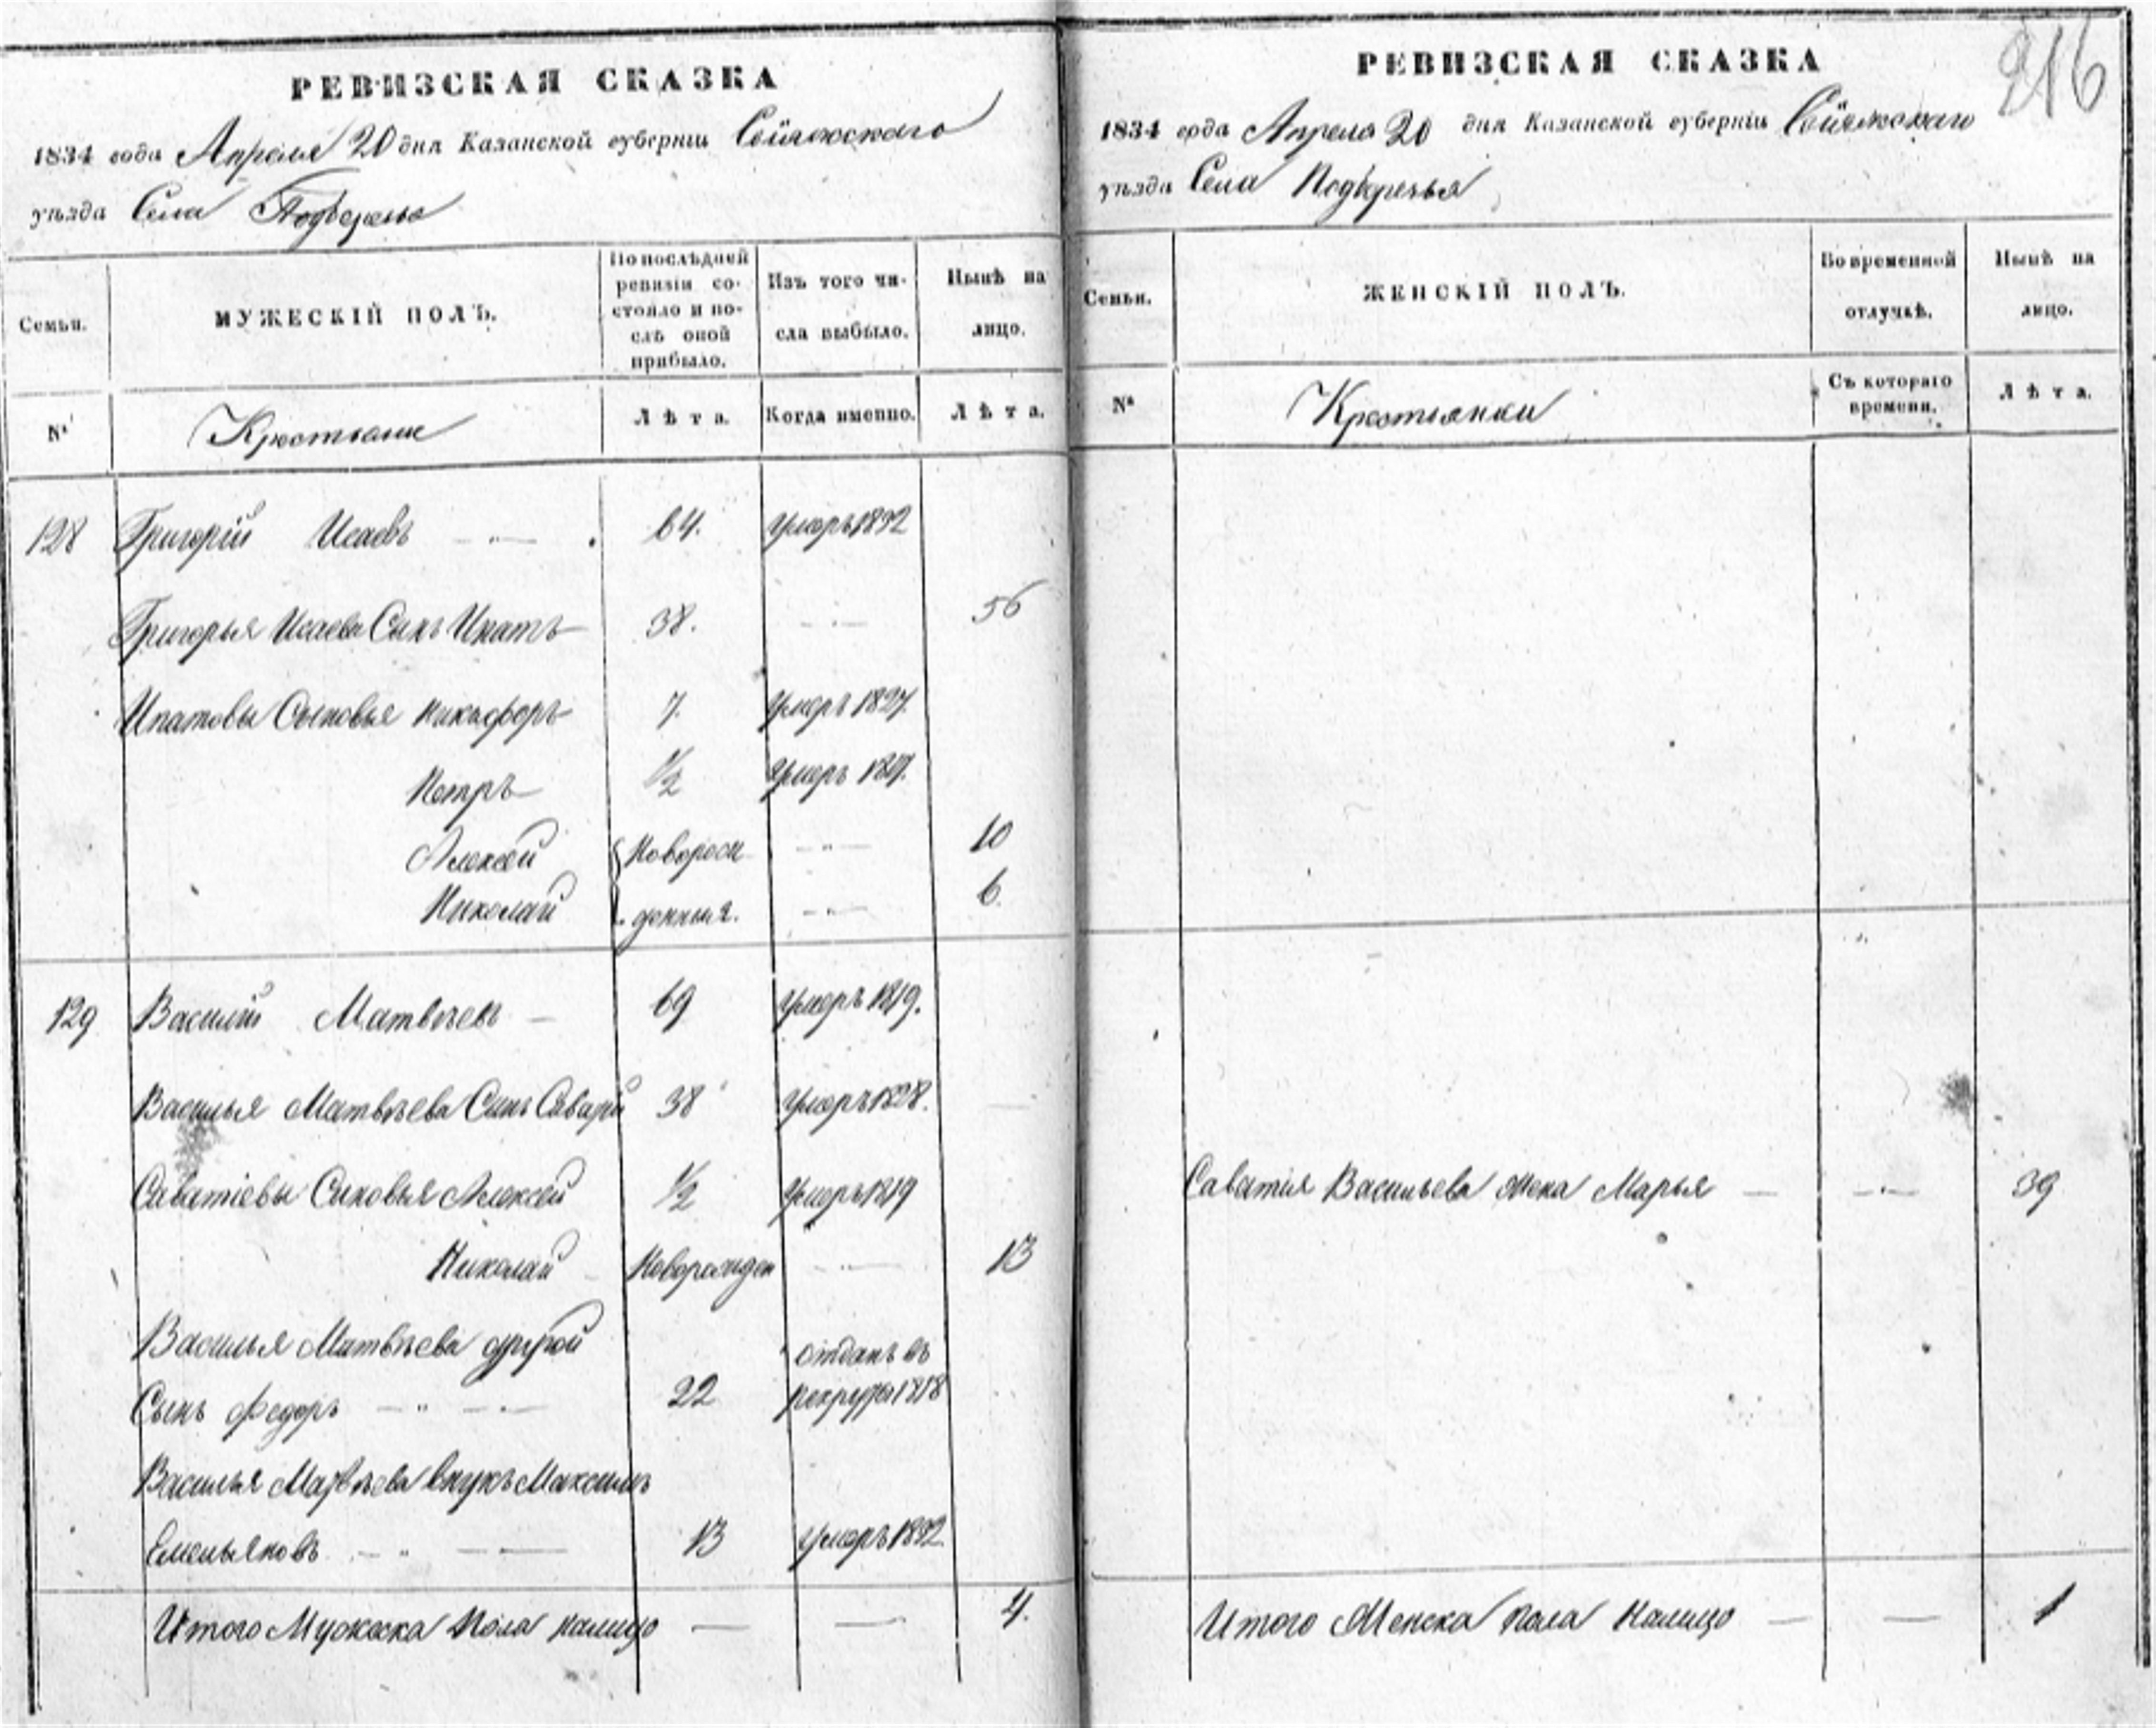 РЕВИЗСКАЯ СКАЗКА
1834 года Апреля 20 дня Казанской губерніи Свіяжскаго
уѣзда Села Подберезья
Семьи.
МУЖЕСКІЙ ПОЛЪ.
По послѣдней ревизіи состояло и послѣ оной прибыло.
Изъ того числа выбыло.
Нынѣ на лицо.
№
Крестьяне
Лѣта.
Когда именно.
Лѣта.
128 Григорій Исаевъ 64. умеръ 1832
Григорья Исаева Сынъ Ипатъ 38. 56
Ипатовы Сыновья Никифоръ 7. умеръ 1827.
Петръ 1/2 умеръ 1817.
Алексей Новорож 10
Николай денныя. 6.
129 Василій Матвѣевъ 69 умеръ 1819.
Василья Матвѣева Сынъ Саватій 38 умеръ 1828.
Саватіевы Сыновья Алексей 1/2 умеръ 1819
Николай Новорожден 13
Василья Матвѣева другой отданъ въ
Сынъ Федоръ 22 рекруты 1818
Василья Матвѣева внукъ Максимъ
Емельяновъ 13 умеръ 1832
Итого Мужеска Пола налицо 4.
216
РЕВИЗСКАЯ СКАЗКА
1834 года Апреля 20 дня Казанской губерніи Свіяжскаго
уѣзда Села Подберезья
Семьи.
ЖЕНСКІЙ ПОЛЪ.
Во временной отлучкѣ.
Нынѣ на лицо.
№
Крестьянки
Съ котораго времени.
Лѣта.
Саватія Васильева жена Марья 39
Итого Женска пола налицо 1